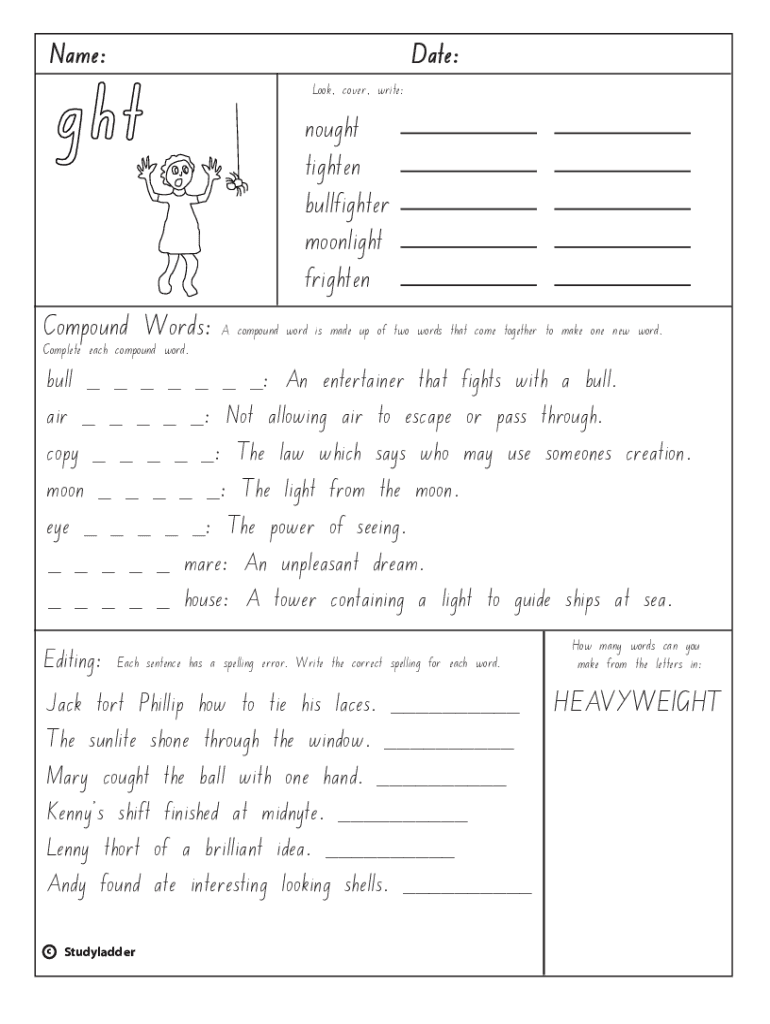 Name: Date:
ght
Look, cover, write:
nought ____________ ____________
tighten ____________ ____________
bullfighter ____________ ____________
moonlight ____________ ____________
frighten ____________ ____________
Compound Words: A compound word is made up of two words that come together to make one new word.
Complete each compound word.
bull _ _ _ _ _ _ _: An entertainer that fights with a bull.
air _ _ _ _ _: Not allowing air to escape or pass through.
copy _ _ _ _ _: The law which says who may use someones creation.
moon _ _ _ _ _: The light from the moon.
eye _ _ _ _ _: The power of seeing.
_ _ _ _ _ mare: An unpleasant dream.
_ _ _ _ _ house: A tower containing a light to guide ships at sea.
Editing: Each sentence has a spelling error. Write the correct spelling for each word.
Jack tort Phillip how to tie his laces. ____________
The sunlite shone through the window. ____________
Mary cought the ball with one hand. ____________
Kenny's shift finished at midnyte. ____________
Lenny thort of a brilliant idea. ____________
Andy found ate interesting looking shells. ____________
How many words can you
make from the letters in:
HEAVYWEIGHT
© Studyladder